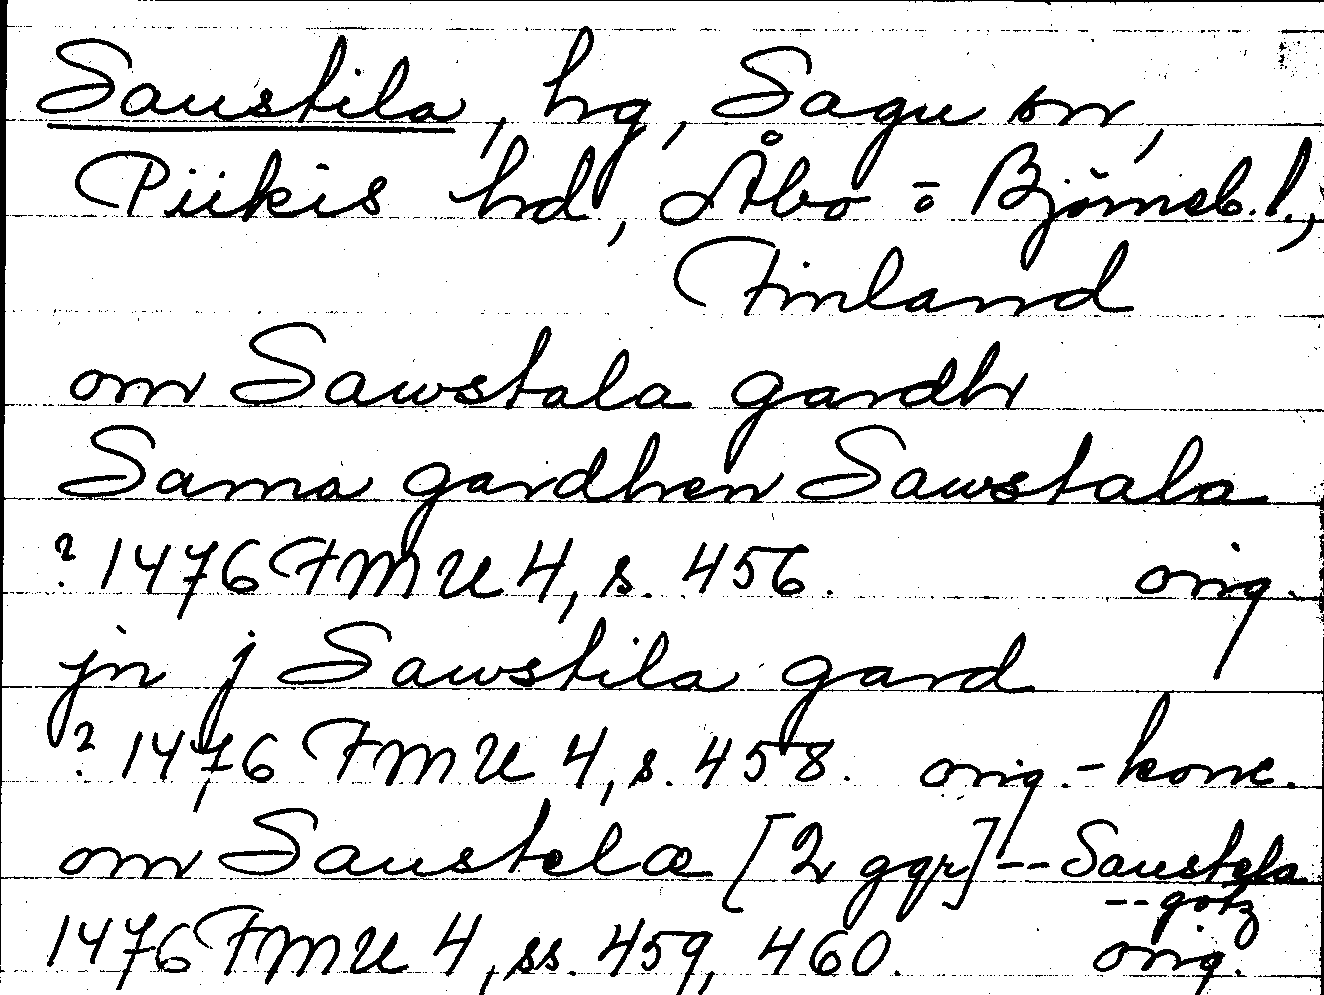 Saustila, hg, Sagu sn,
Piikis hd, Åbo - o Björneb. l.,
Finland
om Sawstala gardh
Sama gardhen Sawstala
? 1476 FMU 4, s. 456. orig.
jn j Sawstila gard
? 1476 FMU 4, s. 458. orig.-konc.
om Saustelæ [2 ggr] -- Saustela
-- götz
1476 FMU 4, ss. 459, 460. orig.